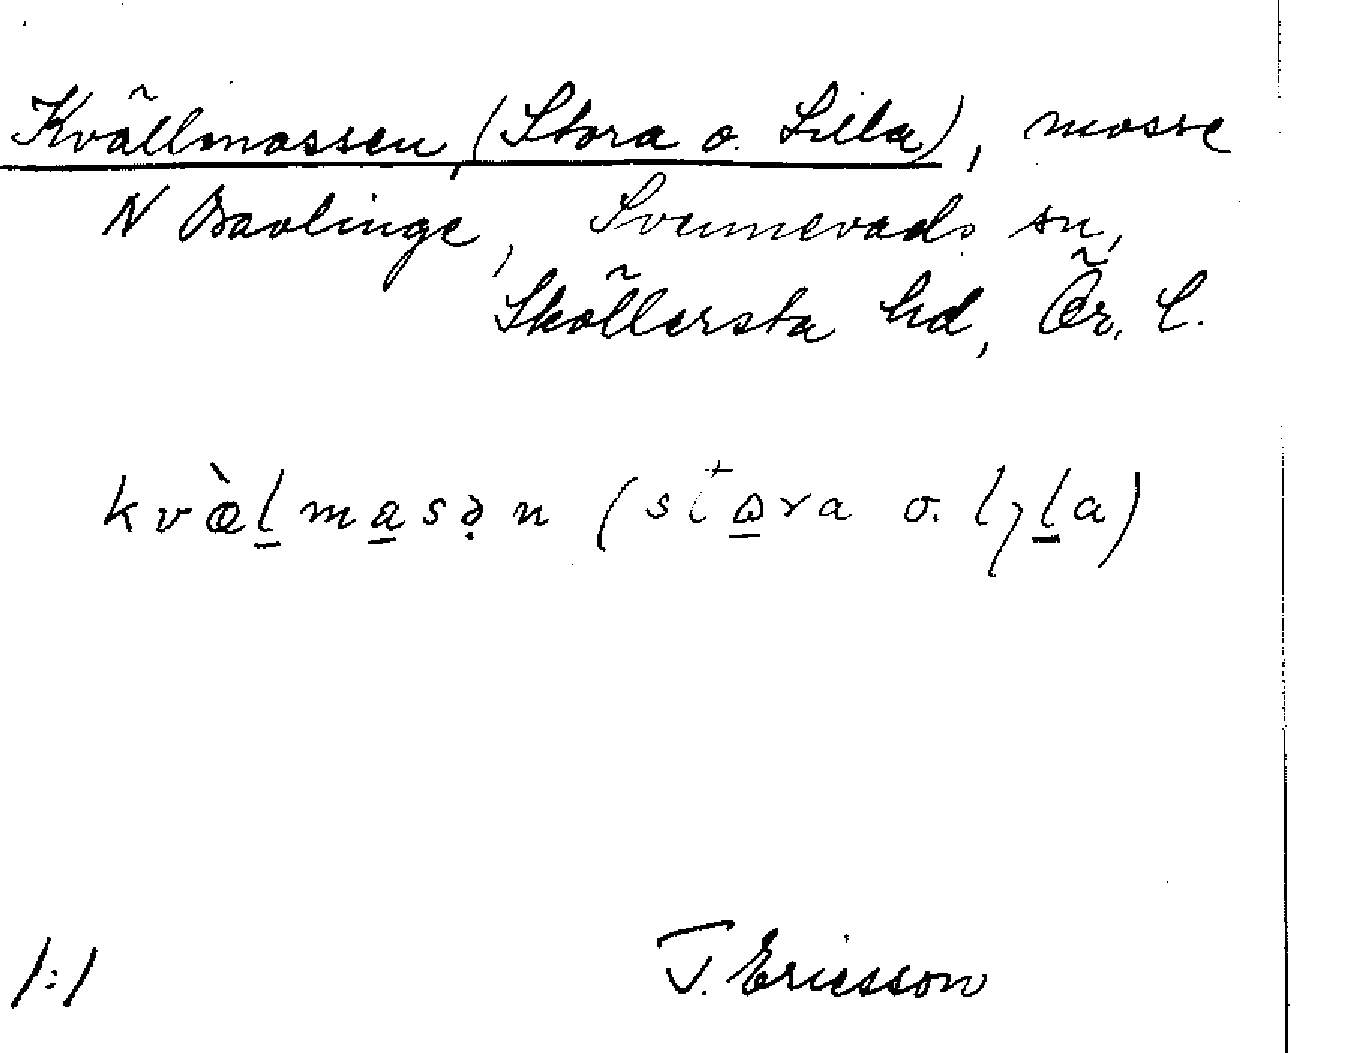 Kvällmossen, (Stora o. Lilla), mosse
N Baalinge, Svennevads sn,
Sköllersta hd, Ör. l.
kvæ̀l̲ma̲sə̣n (stω̲ra o. lɿl̲a)
1:1
J. Ericsson